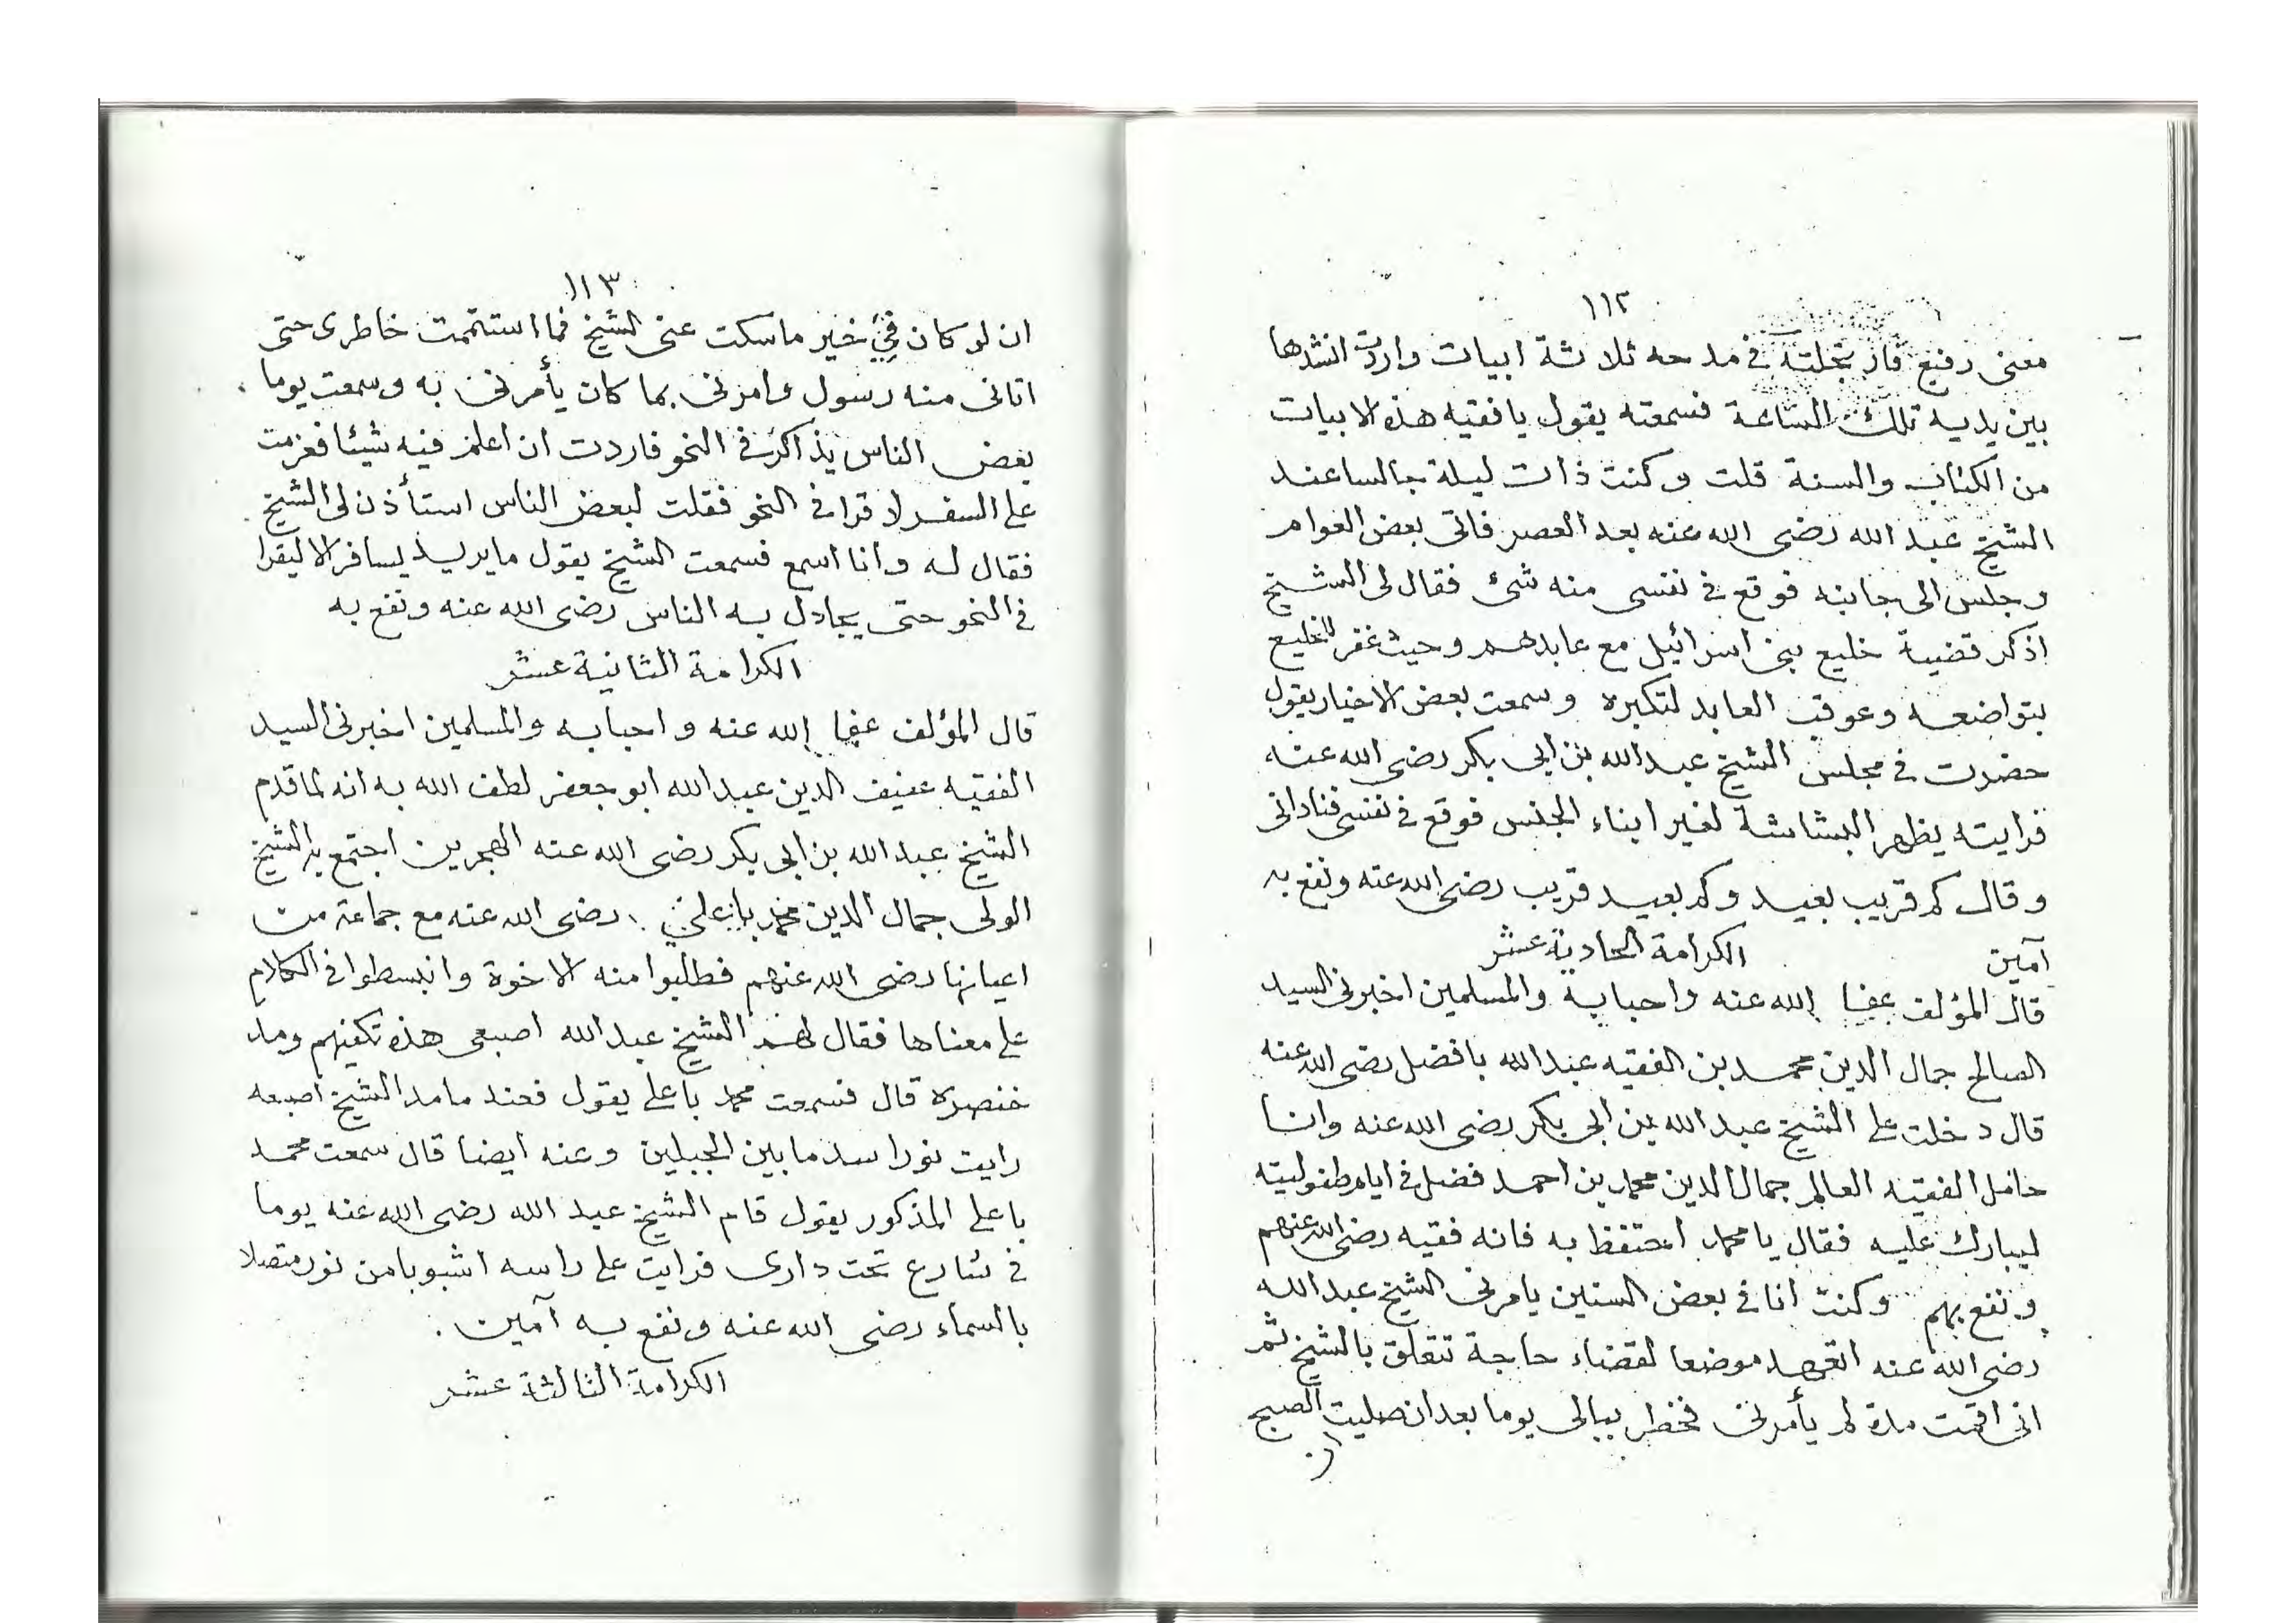 ١١٢
معنى رفيع فارتجلته في مدحه ثلاثة ابيات واردت انشدها
بين يديه تلك الساعة فسمعته يقول يا فقيه هذه الابيات
من الكتاب والسنة قلت وكنت ذات ليلة جالسا عند
الشيخ عبد الله رضى الله عنه بعد العصر فاتى بعض العوام
وجلس الى جانبه فوقع في نفسى منه شئ فقال لى الشيخ
اذكر قضية خليع بنى اسرائيل مع عابدهم وحيث غفر للخليع
بتواضعه وعوقب العابد لتكبره وسمعت بعض الاخيار يقول
حضرت في مجلس الشيخ عبد الله بن ابى بكر رضى الله عنه
فرايته يظهر البشاشة لغير ابناء الجنس فوقع في نفسى فنادانى
وقال كم قريب بعيد وكم بعيد قريب رضى الله عنه ونفع به
آمين الكرامة الحادية عشر
قال المؤلف عفا الله عنه واحبابه والمسلمين اخبرنى السيد
الصالح جمال الدين محمد بن الفقيه عبد الله بافضل رضى الله عنه
قال دخلت على الشيخ عبد الله بن ابى بكر رضى الله عنه وانا
حامل الفقيه العالم جمال الدين محمد بن احمد فضل في ايام طفوليته
ليبارك عليه فقال يا محمد احتفظ به فانه فقيه رضى الله عنهم
ونفع بهم وكنت انا في بعض السنين يامرنى الشيخ عبد الله
رضى الله عنه اتعهد موضعا لقضاء حاجة تتعلق بالشيخ ثم
انى اقمت مدة لم يأمرنى فخطر ببالى يوما بعد ان صليت الصبح
ان
١١٣
ان لو كان فيّ خير ما سكت عنى الشيخ فما استتمت خاطرى حتى
اتانى منه رسول وامرنى بما كان يأمرنى به وسمعت يوما
بعض الناس يذاكر في النحو فاردت ان اعلم فيه شيئا فعزمت
على السفر لاقرا في النحو فقلت لبعض الناس استأذن لى الشيخ
فقال له وانا اسمع فسمعت الشيخ يقول ما يريد يسافر الا ليقرا
في النحو حتى يجادل به الناس رضى الله عنه ونفع به
الكرامة الثانية عشر
قال المؤلف عفا الله عنه واحبابه والمسلمين اخبرنى السيد
الفقيه عفيف الدين عبد الله ابو جعفر لطف الله به انه لما قدم
الشيخ عبد الله بن ابى بكر رضى الله عنه الهجرين اجتمع به الشيخ
الولى جمال الدين محمد باعلي رضى الله عنه مع جماعة من
اعيانها رضى الله عنهم فطلبوا منه الاخوة وانبسطوا في الكلام
على معناها فقال لهم الشيخ عبد الله اصبعى هذه تكفيهم ومد
خنصره قال فسمعت محمد باعلى يقول فعند ما مد الشيخ اصبعه
رايت نورا سد ما بين الجبلين وعنه ايضا قال سمعت محمد
باعلى المذكور يقول قام الشيخ عبد الله رضى الله عنه يوما
في شارع تحت دارى فرايت على راسه اشبوبا من نور متصلا
بالسماء رضى الله عنه ونفع به آمين .
الكرامة الثالثة عشر